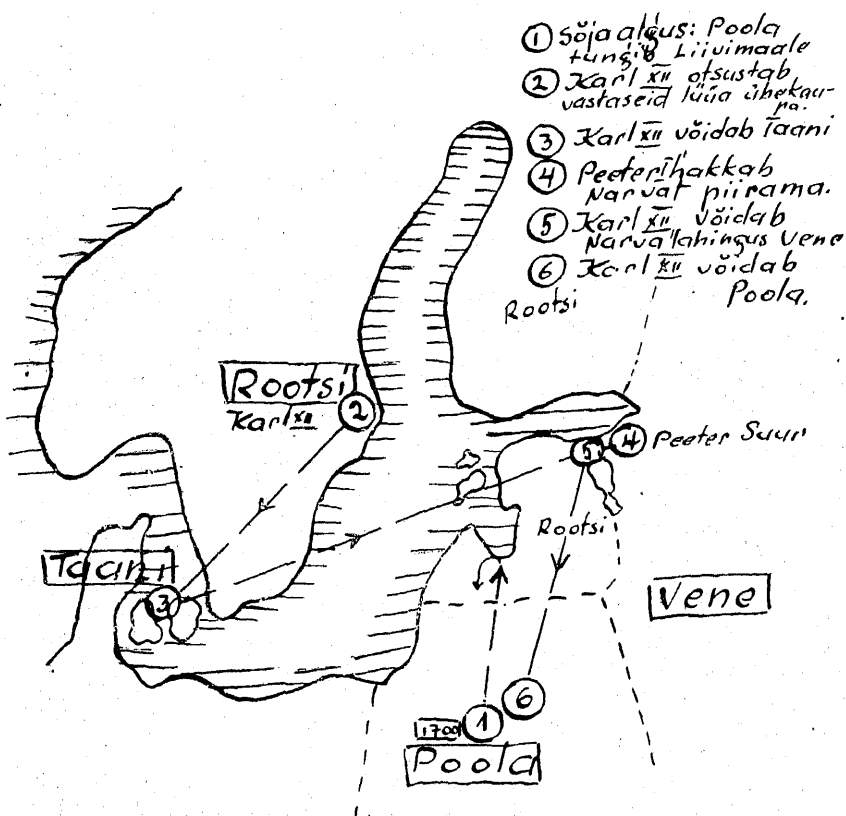 ① Sõja algus: Poola
tungib Liivimaale
② Karl XII otsustab
vastaseid lüüa ühekau-
pa.
③ Karl XII võidab Taani
④ Peeter I hakkab
Narvat piirama.
⑤ Karl XII võidab
Narva lahingus Vene
⑥ Karl XII võidab
Poola.
Rootsi
Rootsi
Karl XII
②
⑤ ④ Peeter Suur
Rootsi
Taani
③
Vene
⑥
1700 ①
Poola